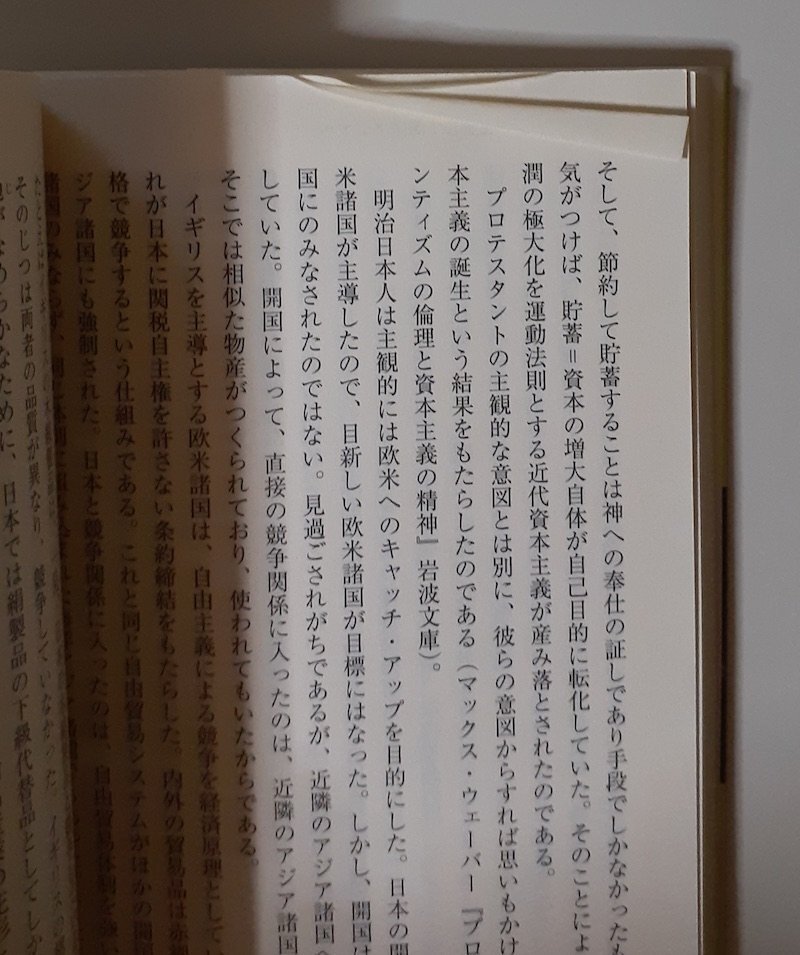 そして、節約して貯蓄することは神への奉仕の証しであり手段でしかなかったも
気がつけば、貯蓄＝資本の増大自体が自己目的に転化していた。そのことによ
潤の極大化を運動法則とする近代資本主義が産み落とされたのである。
プロテスタントの主観的な意図とは別に、彼らの意図からすれば思いもかけ
本主義の誕生という結果をもたらしたのである（マックス・ウェーバー『プロ
ンティズムの倫理と資本主義の精神』岩波文庫）。
明治日本人は主観的には欧米へのキャッチ・アップを目的にした。日本の開
米諸国が主導したので、目新しい欧米諸国が目標にはなった。しかし、開国は
国にのみなされたのではない。見過ごされがちであるが、近隣のアジア諸国へ
していた。開国によって、直接の競争関係に入ったのは、近隣のアジア諸国
そこでは相似た物産がつくられており、使われてもいたからである。
イギリスを主導とする欧米諸国は、自由主義による競争を経済原理として
れが日本に関税自主権を許さない条約締結をもたらした。内外の貿易品は赤裸
格で競争するという仕組みである。これと同じ自由貿易システムがほかの開
ジア諸国にも強制された。日本と競争関係に入ったのは、自由貿易体制を強い
諸国のみならず、
そのじつは両者の品質が異なり、競争していなかった。イギリスの
なめらかなために、日本では絹製品の下級代替品として